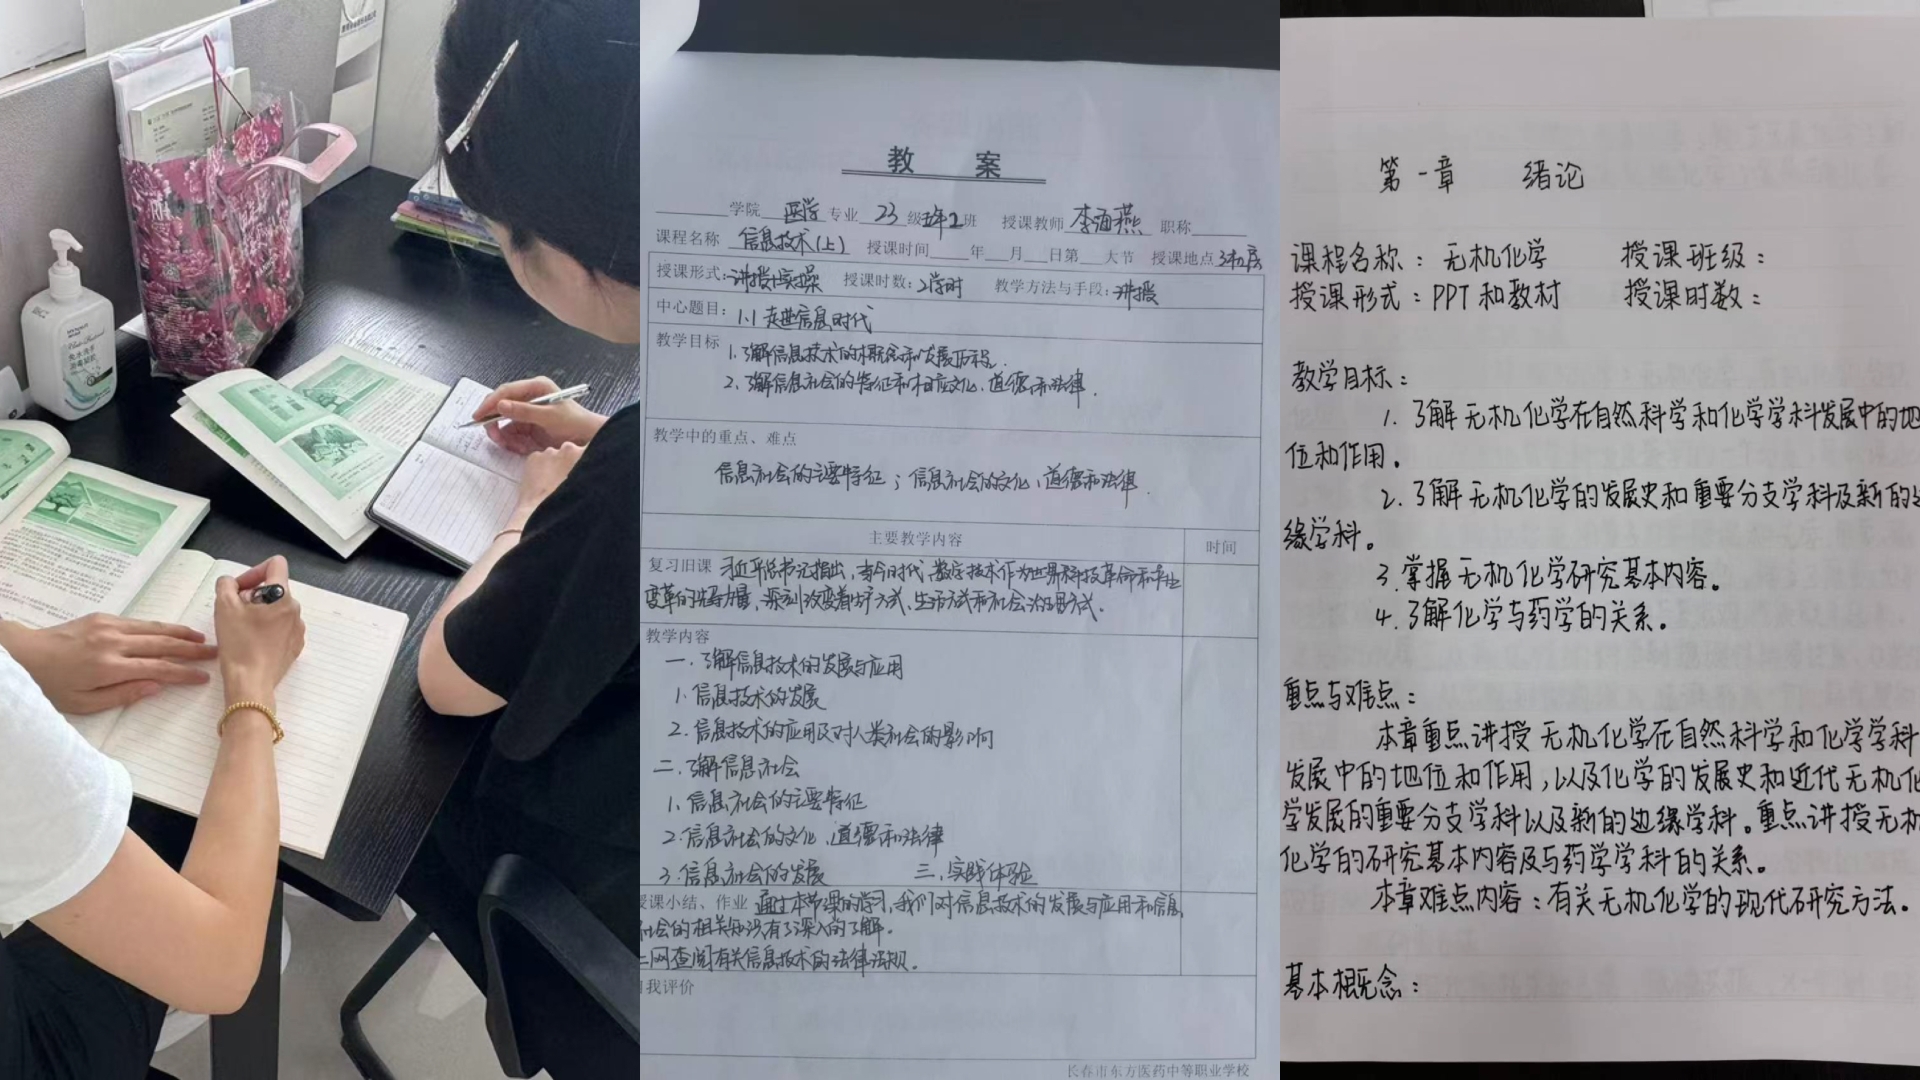 免水洗手
消毒凝胶
教 案
学院 医学 专业 23 级五年2班 授课教师 李通燕 职称
课程名称 信息技术(上) 授课时间 年 月 日第 大节 授课地点 3机房
授课形式:讲授+实操 授课时数:2学时 教学方法与手段:讲授
中心题目:1.1 走进信息时代
教学目标 1.了解信息技术的概念和发展历程.
2.了解信息社会的特征和相应文化、道德和法律.
教学中的重点、难点
信息社会的主要特征;信息社会的文化、道德和法律.
主要教学内容 时间
复习旧课 习近平总书记指出,当今时代,数字技术作为世界科技革命和产业
变革的先导力量,深刻改变着生产方式、生活方式和社会治理方式.
教学内容
一.了解信息技术的发展与应用
1.信息技术的发展
2.信息技术的应用及对人类社会的影响
二.了解信息社会
1.信息社会的主要特征
2.信息社会的文化、道德和法律
3.信息社会的发展 三.实践体验
授课小结、作业 通过本节课的学习,我们对信息技术的发展与应用和信息
社会的相关知识有了深入的了解.
上网查阅有关信息技术的法律法规.
自我评价
长春市东方医药中等职业学校
第一章 绪论
课程名称:无机化学 授课班级:
授课形式:PPT和教材 授课时数:
教学目标:
1.了解无机化学在自然科学和化学学科发展中的地
位和作用。
2.了解无机化学的发展史和重要分支学科及新的边
缘学科。
3.掌握无机化学研究基本内容。
4.了解化学与药学的关系。
重点与难点:
本章重点讲授无机化学在自然科学和化学学科
发展中的地位和作用,以及化学的发展史和近代无机化
学发展的重要分支学科以及新的边缘学科。重点讲授无机
化学的研究基本内容及与药学学科的关系。
本章难点内容:有关无机化学的现代研究方法。
基本概念: